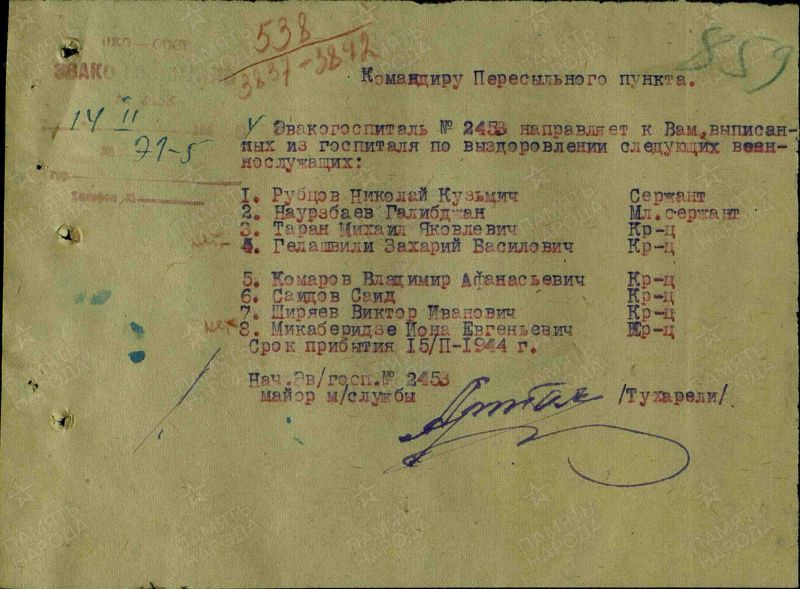 538
3837-3842
859
НКО—СССР
ЭВАКО
№ 2453
14 II
№ 71-5
Командиру Пересыльного пункта.
Эвакогоспиталь № 2453 направляет к Вам, выписан-
ных из госпиталя по выздоровлении следующих воен-
нослужащих:
1. Рубцов Николай Кузьмич Сержант
2. Наурзбаев Галибджан Мл.сержант
3. Таран Михаил Яковлевич Кр-ц
нет 4. Гелашвили Захарий Василович Кр-ц
5. Комаров Владимир Афанасьевич Кр-ц
6. Саидов Саид Кр-ц
7. Ширяев Виктор Иванович Кр-ц
нет 8. Микаберидзе Иона Евгеньевич Кр-ц
Срок прибытия 15/П-1944 г.
Нач.Эв/госп.№ 2453
майор м/службы /Тухарели/
ПАМЯТЬ НАРОДА